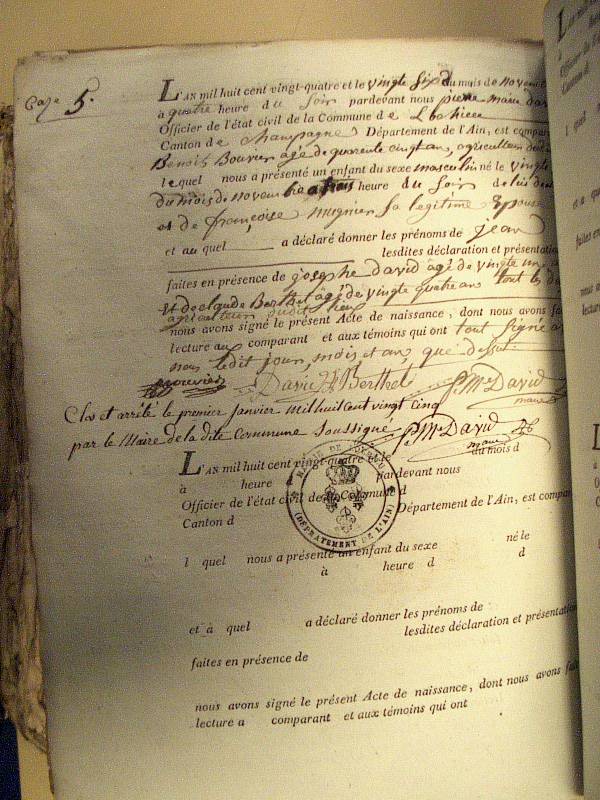 Page 5.
L'AN mil huit cent vingt-quatre et le vingt six du mois de novem
à quatre heure du soir pardevant nous pierre marie dav
Officier de l'état civil de la Commune de
Canton de champagne Département de l'Ain, est compar
Benoit Bouvier âgé de quarente cinq ans, agriculteur
lequel nous a présenté un enfant du sexe masculin né le vingt
du mois de novembre a trois heure du soir de lui
et de françoise mugnier sa legitime Epouse
et au quel a déclaré donner les prénoms de jean
lesdites déclaration et présentation
faites en présence de josephe david âgé de vingte
et de claude Berthet âgé de vingte quatre ans tout les d
agriculteur sudit lieu
nous avons signé le présent Acte de naissance, dont nous avons fa
lecture au comparant et aux témoins qui ont tout signé a
nous ledit jour, mois et an que dessut.
Bouvier David Berthet P. Me David
maire
Clos et arrêté le premier janvier mil huit cent vingt cinq
par le Maire de la dite Commune soussigné P. Me David
maire
L'AN mil huit cent vingt-quatre et le du mois d
à heure pardevant nous
Officier de l'état civil de la Commune d
Canton d Département de l'Ain, est compar
l quel nous a présenté un enfant du sexe né le
à heure d d
et à quel a déclaré donner les prénoms de
lesdites déclaration et présentation
faites en présence de
nous avons signé le présent Acte de naissance, dont nous avons fait
lecture a comparant et aux témoins qui ont
MAIRIE DE
(DÉPARTEMENT DE L'AIN)